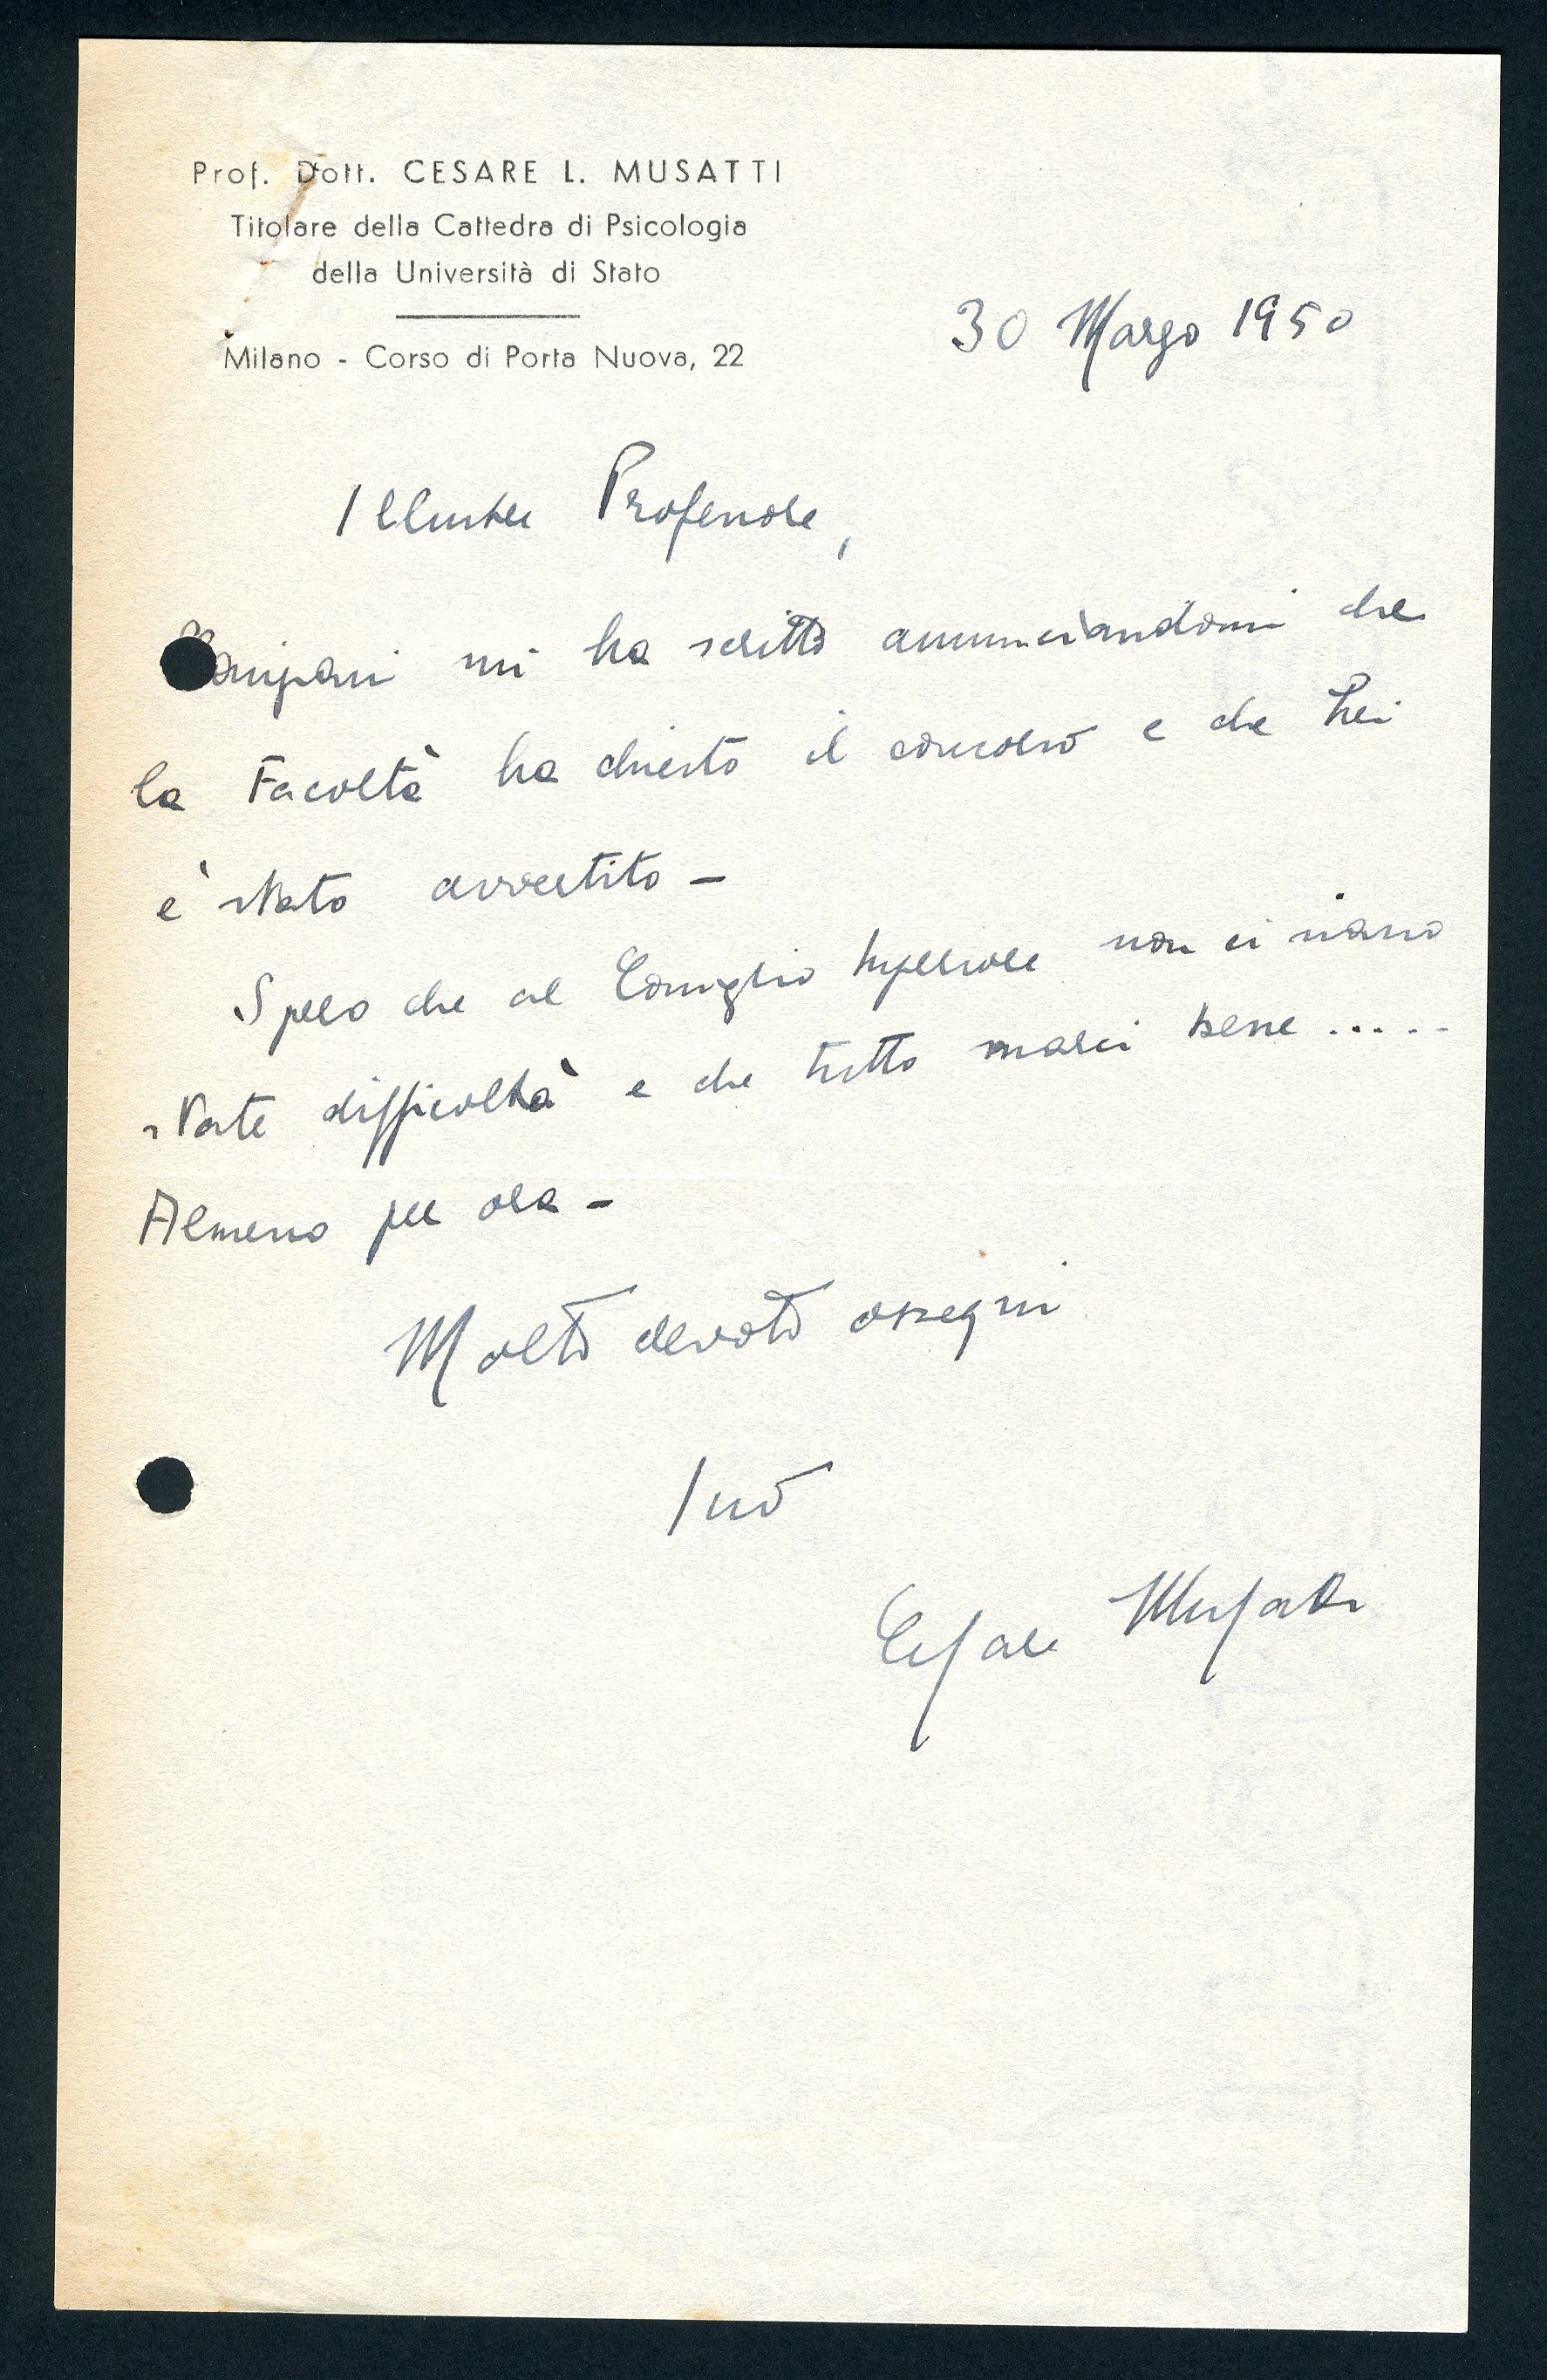 Prof. Dott. CESARE L. MUSATTI
Titolare della Cattedra di Psicologia
della Università di Stato
Milano - Corso di Porta Nuova, 22
30 Marzo 1950
Illustre Professore,
mi ha scritto annunciandomi che
la Facoltà ha chiesto il concorso e che Lei
è stato avvertito -
Spero che al Consiglio Superiore non ci siano
state difficoltà e che tutto marci bene .....
Almeno per ora -
Molto devoti ossequi
Suo
Cesare Musatti